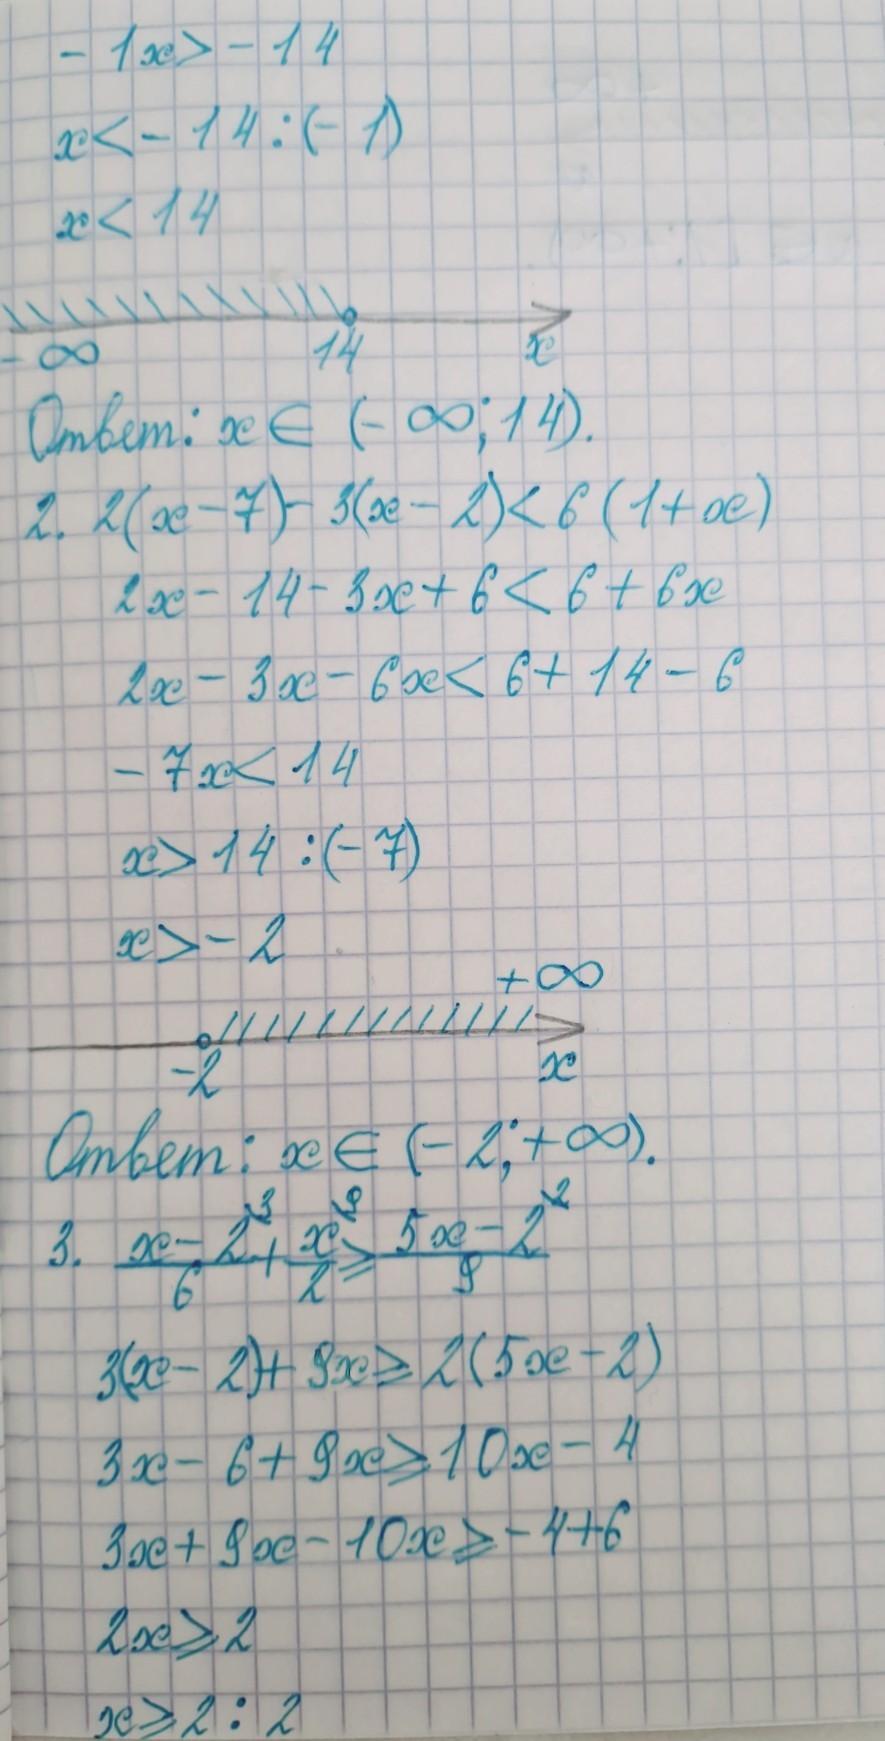 - 1x > - 14
x < - 14 : (- 1)
x < 14
- ∞ 14 x
Ответ: x ∈ (- ∞; 14).
2. 2(x - 7) - 3(x - 2) < 6 (1 + x)
2x - 14 - 3x + 6 < 6 + 6x
2x - 3x - 6x < 6 + 14 - 6
- 7x < 14
x > 14 : (- 7)
x > - 2
+ ∞
-2 x
Ответ: x ∈ (- 2; + ∞).
3. (x - 2)/6 ^3 + x/2 ^9 ≥ (5x - 2)/9 ^2
3(x - 2) + 9x ≥ 2(5x - 2)
3x - 6 + 9x ≥ 10x - 4
3x + 9x - 10x ≥ - 4 + 6
2x ≥ 2
x ≥ 2 : 2